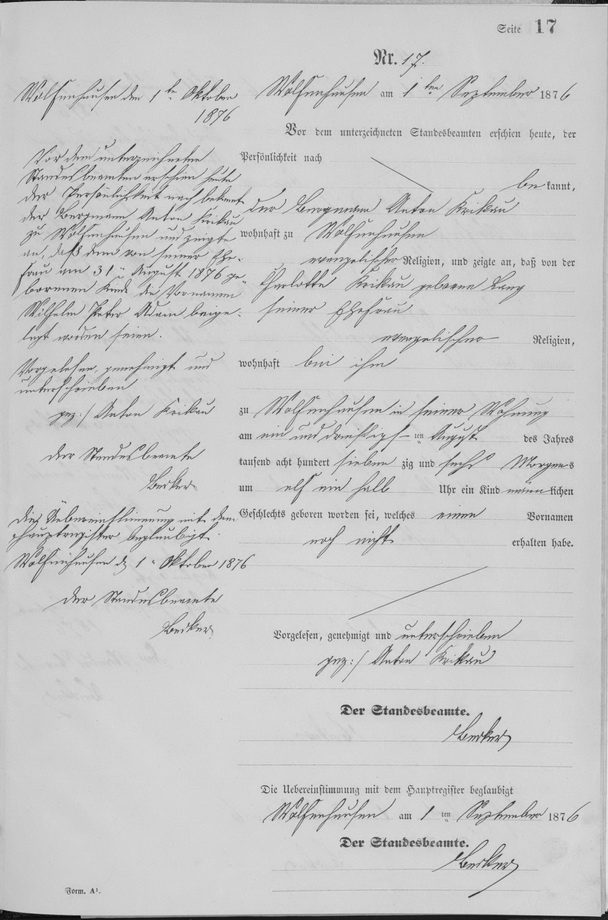 Seite 17
Nr. 17.
Wolfenhausen am 1ten September 1876
Vor dem unterzeichneten Standesbeamten erschien heute, der
Persönlichkeit nach
bekannt,
der Bergmann Anton Krikau
wohnhaft zu Wolfenhausen
evangelischer Religion, und zeigte an, daß von der
Charlotte Krikau geborene Lang
seiner Ehefrau
evangelischer Religion,
wohnhaft bei ihm
zu Wolfenhausen in seiner Wohnung
am ein und dreißigsten August des Jahres
tausend acht hundert siebenzig und sechs Morgens
um elf ein halb Uhr ein Kind männlichen
Geschlechts geboren worden sei, welches einen Vornamen
noch nicht erhalten habe.
Vorgelesen, genehmigt und unterschrieben
gez:/ Anton Krikau
Der Standesbeamte.
Becker
Die Uebereinstimmung mit dem Hauptregister beglaubigt
Wolfenhausen am 1ten September 1876
Der Standesbeamte.
Becker
Wolfenhausen den 1ten Oktober
1876
Vor dem unterzeichneten
Standesbeamten erschien heute
der Persönlichkeit nach bekannt
der Bergmann Anton Krikau
zu Wolfenhausen und zeigte
an, daß dem von seiner Ehe-
frau am 31. August 1876 ge-
borenen Kinde die Vornamen
Wilhelm Peter Adam beige-
legt worden seien.
Vorgelesen, genehmigt und
unterschrieben
gez:/ Anton Krikau
Der Standesbeamte
Becker
Die Uebereinstimmung mit dem
Hauptregister beglaubigt.
Wolfenhausen d. 1. Oktober 1876
Der Standesbeamte
Becker
Form. A¹.